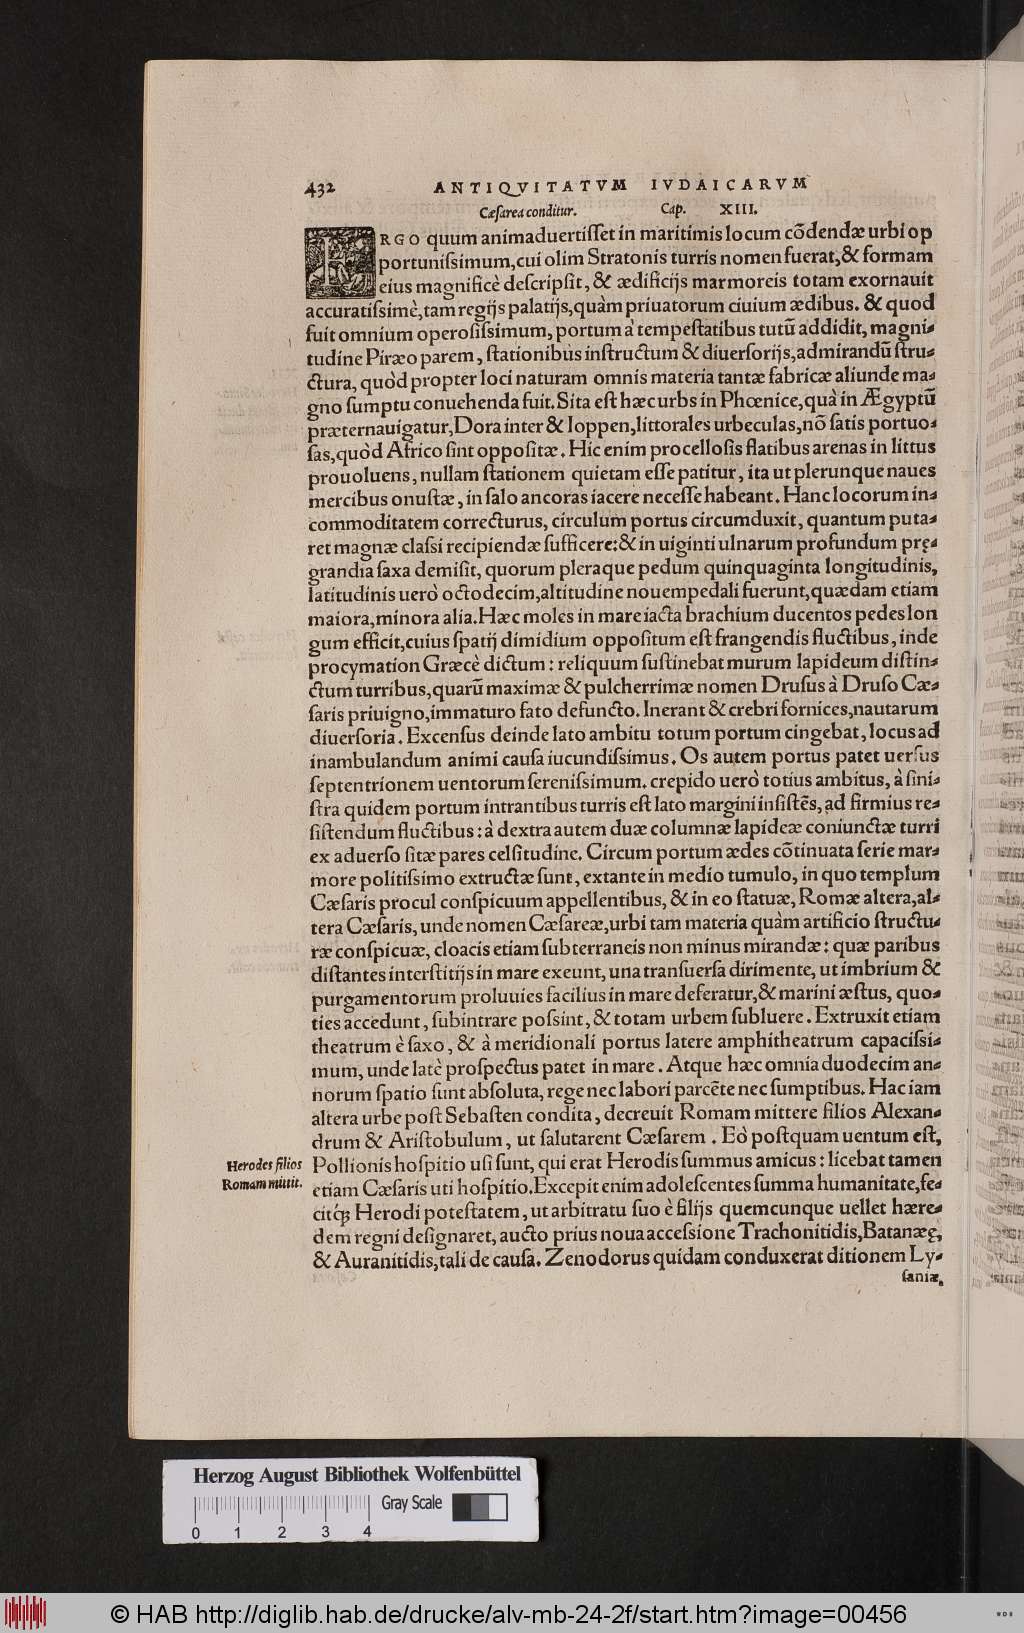 432 ANTIQVITATVM IVDAICARVM
Cæſarea conditur. Cap. XIII.
ERGO quum animaduertiſſet in maritimis locum cõdendæ urbi op
portuniſsimum, cui olim Stratonis turris nomen fuerat, & formam
eius magnificè deſcripſit, & ædificijs marmoreis totam exornauit
accuratiſsimè, tam regijs palatijs, quàm priuatorum ciuium ædibus. & quod
fuit omnium operoſiſsimum, portum à tempeſtatibus tutũ addidit, magni-
tudine Piræo parem, ſtationibus inſtructum & diuerſorijs, admirandũ ſtru-
ctura, quòd propter loci naturam omnis materia tantæ fabricæ aliunde ma-
gno ſumptu conuehenda fuit. Sita eſt hæc urbs in Phœnice, quà in Ægyptũ
præternauigatur, Dora inter & Ioppen, littorales urbeculas, nõ ſatis portuo-
ſas, quòd Africo ſint oppoſitæ. Hic enim procelloſis flatibus arenas in littus
prouoluens, nullam ſtationem quietam eſſe patitur, ita ut plerunque naues
mercibus onuſtæ, in ſalo ancoras iacere neceſſe habeant. Hanc locorum in-
commoditatem correcturus, circulum portus circumduxit, quantum puta-
ret magnæ claſsi recipiendæ ſufficere: & in uiginti ulnarum profundum prę-
grandia ſaxa demiſit, quorum pleraque pedum quinquaginta longitudinis,
latitudinis uerò octodecim, altitudine nouempedali fuerunt, quædam etiam
maiora, minora alia. Hæc moles in mare iacta brachium ducentos pedes lon
gum efficit, cuius ſpatij dimidium oppoſitum eſt frangendis fluctibus, inde
procymation Græcè dictum: reliquum ſuſtinebat murum lapideum diſtin-
ctum turribus, quarũ maximæ & pulcherrimæ nomen Druſus à Druſo Cæ-
ſaris priuigno, immaturo fato defuncto. Inerant & crebri fornices, nautarum
diuerſoria. Excenſus deinde lato ambitu totum portum cingebat, locus ad
inambulandum animi cauſa iucundiſsimus. Os autem portus patet uerſus
ſeptentrionem uentorum ſereniſsimum. crepido uerò totius ambitus, à ſini-
ſtra quidem portum intrantibus turris eſt lato margini inſiſtẽs, ad firmius re-
ſiſtendum fluctibus: à dextra autem duæ columnæ lapideæ coniunctæ turri
ex aduerſo ſitæ pares celſitudine. Circum portum ædes cõtinuata ſerie mar-
more politiſsimo extructæ ſunt, extante in medio tumulo, in quo templum
Cæſaris procul conſpicuum appellentibus, & in eo ſtatuæ, Romæ altera, al-
tera Cæſaris, unde nomen Cæſareæ, urbi tam materia quàm artificio ſtructu-
ræ conſpicuæ, cloacis etiam ſubterraneis non minus mirandæ: quæ paribus
diſtantes interſtitijs in mare exeunt, una tranſuerſa dirimente, ut imbrium &
purgamentorum proluuies facilius in mare deferatur, & marini æſtus, quo-
ties accedunt, ſubintrare poſsint, & totam urbem ſubluere. Extruxit etiam
theatrum è ſaxo, & à meridionali portus latere amphitheatrum capaciſsi-
mum, unde latè proſpectus patet in mare. Atque hæc omnia duodecim an-
norum ſpatio ſunt abſoluta, rege nec labori parcẽte nec ſumptibus. Hac iam
altera urbe poſt Sebaſten condita, decreuit Romam mittere filios Alexan-
drum & Ariſtobulum, ut ſalutarent Cæſarem. Eò poſtquam uentum eſt,
Herodes filios Pollionis hoſpitio uſi ſunt, qui erat Herodis ſummus amicus: licebat tamen
Romam mittit. etiam Cæſaris uti hoſpitio. Excepit enim adoleſcentes ſumma humanitate, fe-
citq́; Herodi poteſtatem, ut arbitratu ſuo è filijs quemcunque uellet hære-
dem regni deſignaret, aucto prius noua acceſsione Trachonitidis, Batanææ,
& Auranitidis, tali de cauſa. Zenodorus quidam conduxerat ditionem Ly-
ſaniæ,
Herzog August Bibliothek Wolfenbüttel
Gray Scale
0 1 2 3 4
© HAB http://diglib.hab.de/drucke/alv-mb-24-2f/start.htm?image=00456